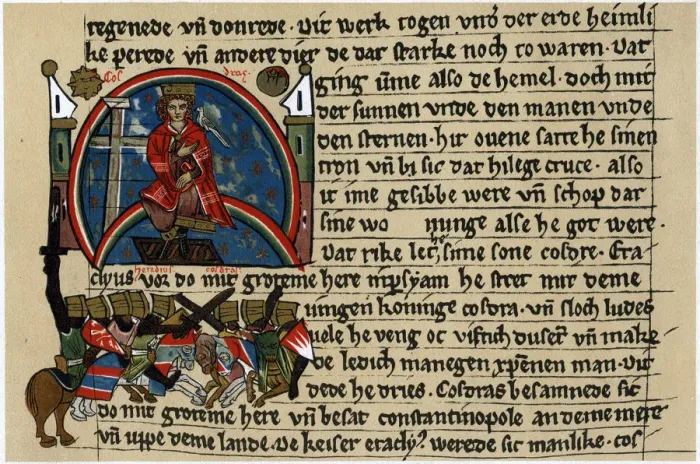 regenede vn̄ donrede · Dit werk togen vnd der erde heimli
ke perede vn̄ andere dier de dar starke noch to waren · Dat
Cos drac
ging v̄me also de hemel · doch mit
der sunnen vnde den manen vnde
den sternen · hir ouene satte he sinen
tron vn̄ bi sic dat hilege cruce · also
it ime gesibbe were vn̄ schop dar
sine wo nunge alse he got were ·
Dat rike let he sime sone cosdre · Era
heraclius cosdras
clyus vor do mit groteme here in psyam he stret mit deme
iungen koninge cosdra · vn̄ sloch ludes
uele he veng oc viftich dusent vn̄ make
de ledich manegen xp̄enen man · Dit
dede he dries · Cosdras besamnede sic
do mit groteme here vn̄ besat constantinopole an deme mere
vn̄ vppe deme lande · De keiser eracly⁹ werede sic manlike · cos